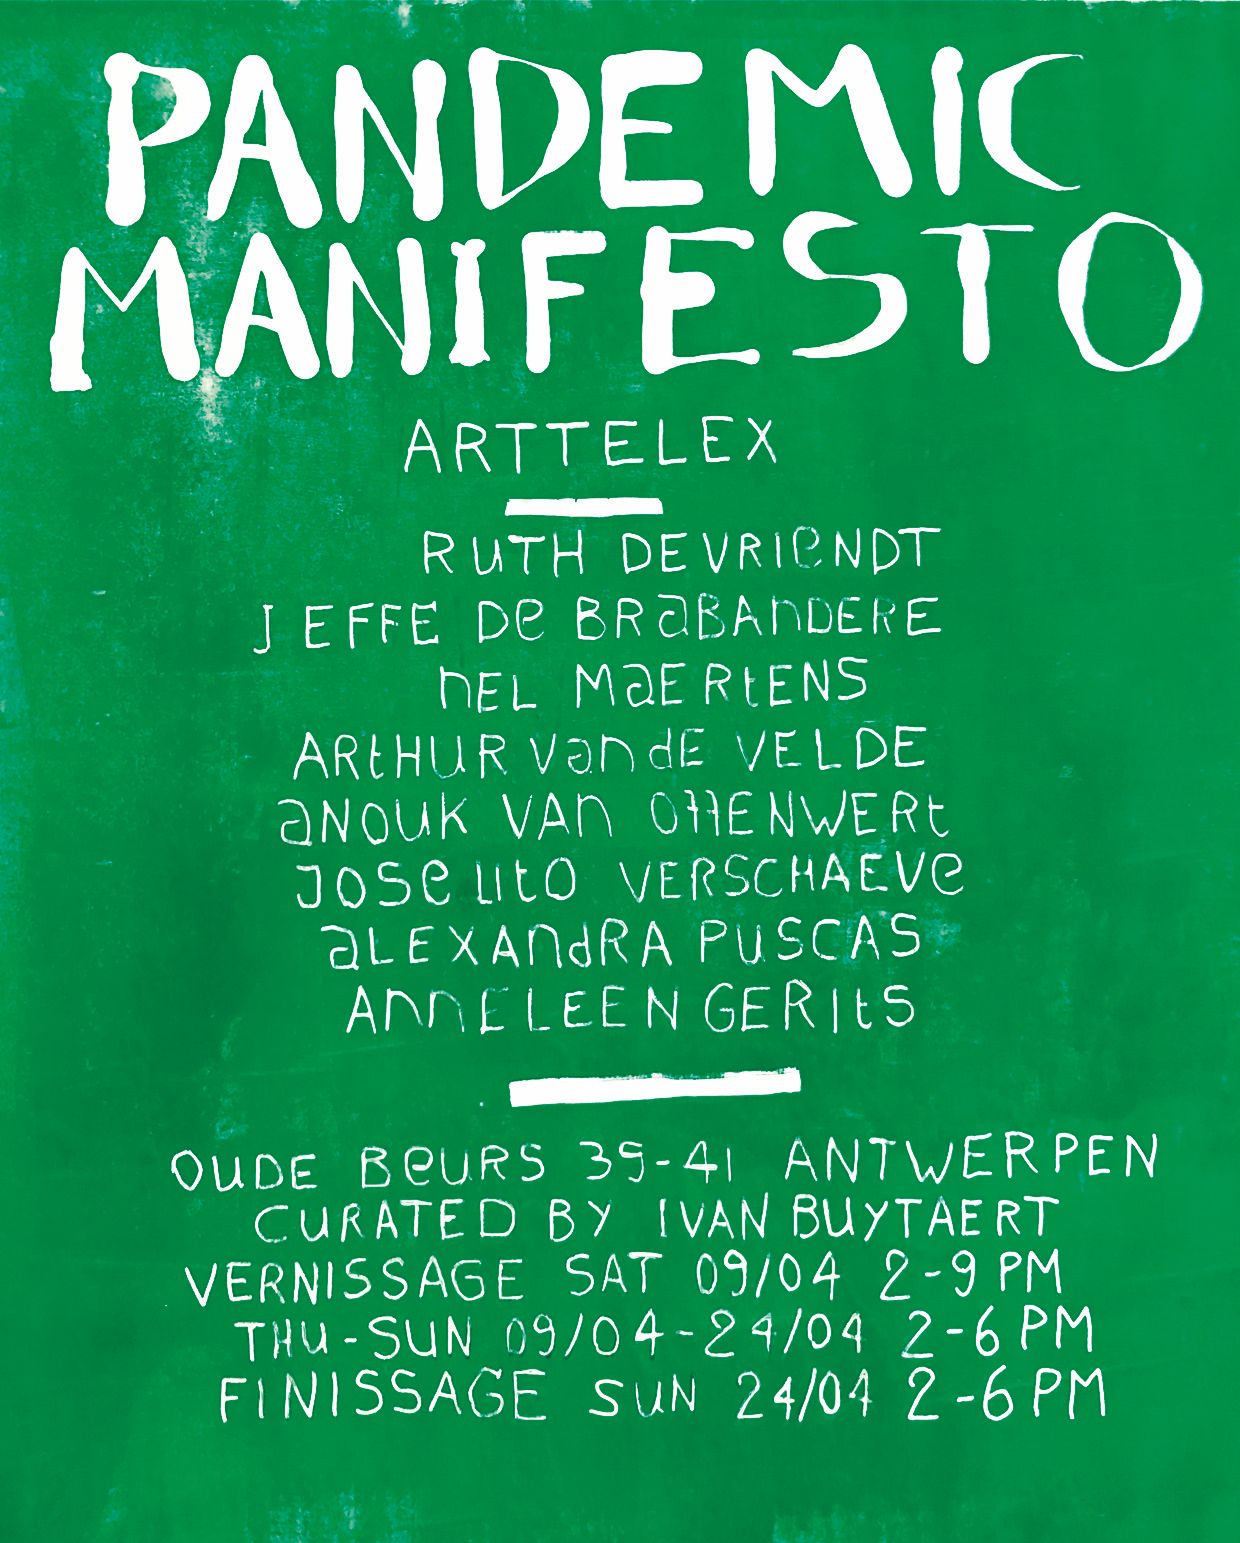 PANDEMIC
MANIFESTO
ARTTELEX
RUTH DEVRIENDT
JEFFE DE BRABANDERE
NEL MAERTENS
ARTHUR VANDE VELDE
ANOUK VAN OFFENWERT
JOSELITO VERSCHAEVE
ALEXANDRA PUSCAS
ANNELEEN GERITS
OUDE BEURS 39-41 ANTWERPEN
CURATED BY IVAN BUYTAERT
VERNISSAGE SAT 09/04 2-9 PM
THU-SUN 09/04-24/04 2-6 PM
FINISSAGE SUN 24/04 2-6 PM